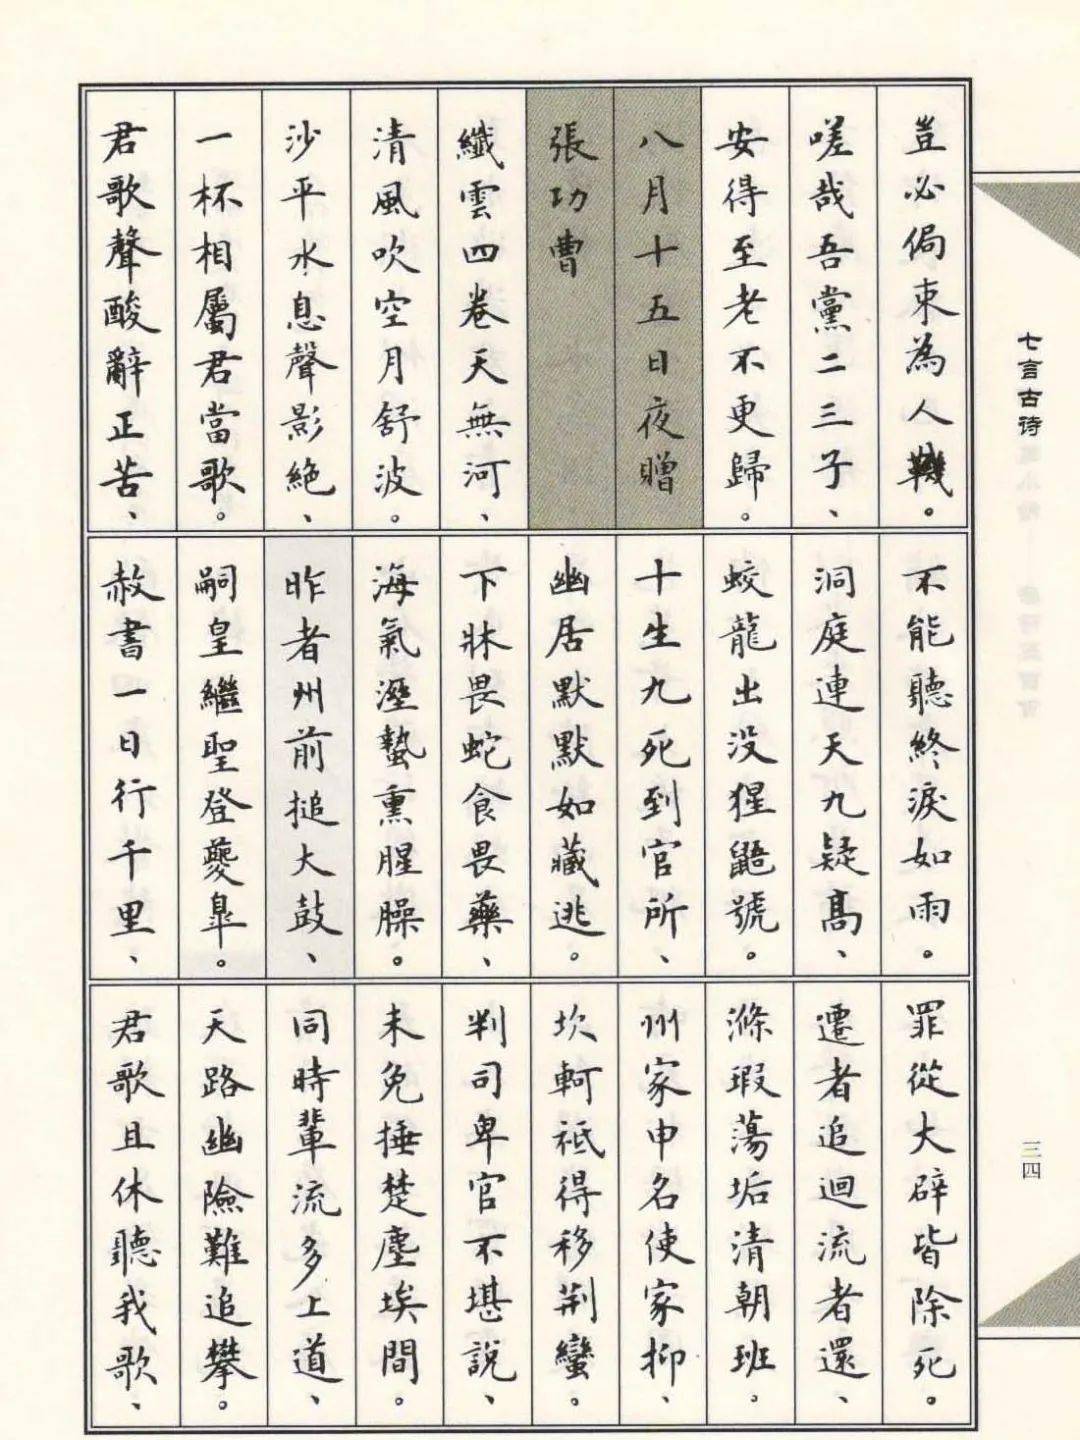 豈必侷束為人鞿。
嗟哉吾黨二三子、
安得至老不更歸。
八月十五日夜贈
張功曹
纖雲四卷天無河、
清風吹空月舒波。
沙平水息聲影絕、
一杯相屬君當歌。
君歌聲酸辭正苦、
不能聽終淚如雨。
洞庭連天九疑高、
蛟龍出沒猩鼯號。
十生九死到官所、
幽居默默如藏逃。
下牀畏蛇食畏藥、
海氣溼蟄熏腥臊。
昨者州前搥大鼓、
嗣皇繼聖登夔皐。
赦書一日行千里、
罪從大辟皆除死。
遷者追迴流者還、
滌瑕蕩垢清朝班。
州家申名使家抑、
坎軻祗得移荆蠻。
判司卑官不堪說、
未免捶楚塵埃間。
同時輩流多上道、
天路幽險難追攀。
君歌且休聽我歌、
七言古诗
三四